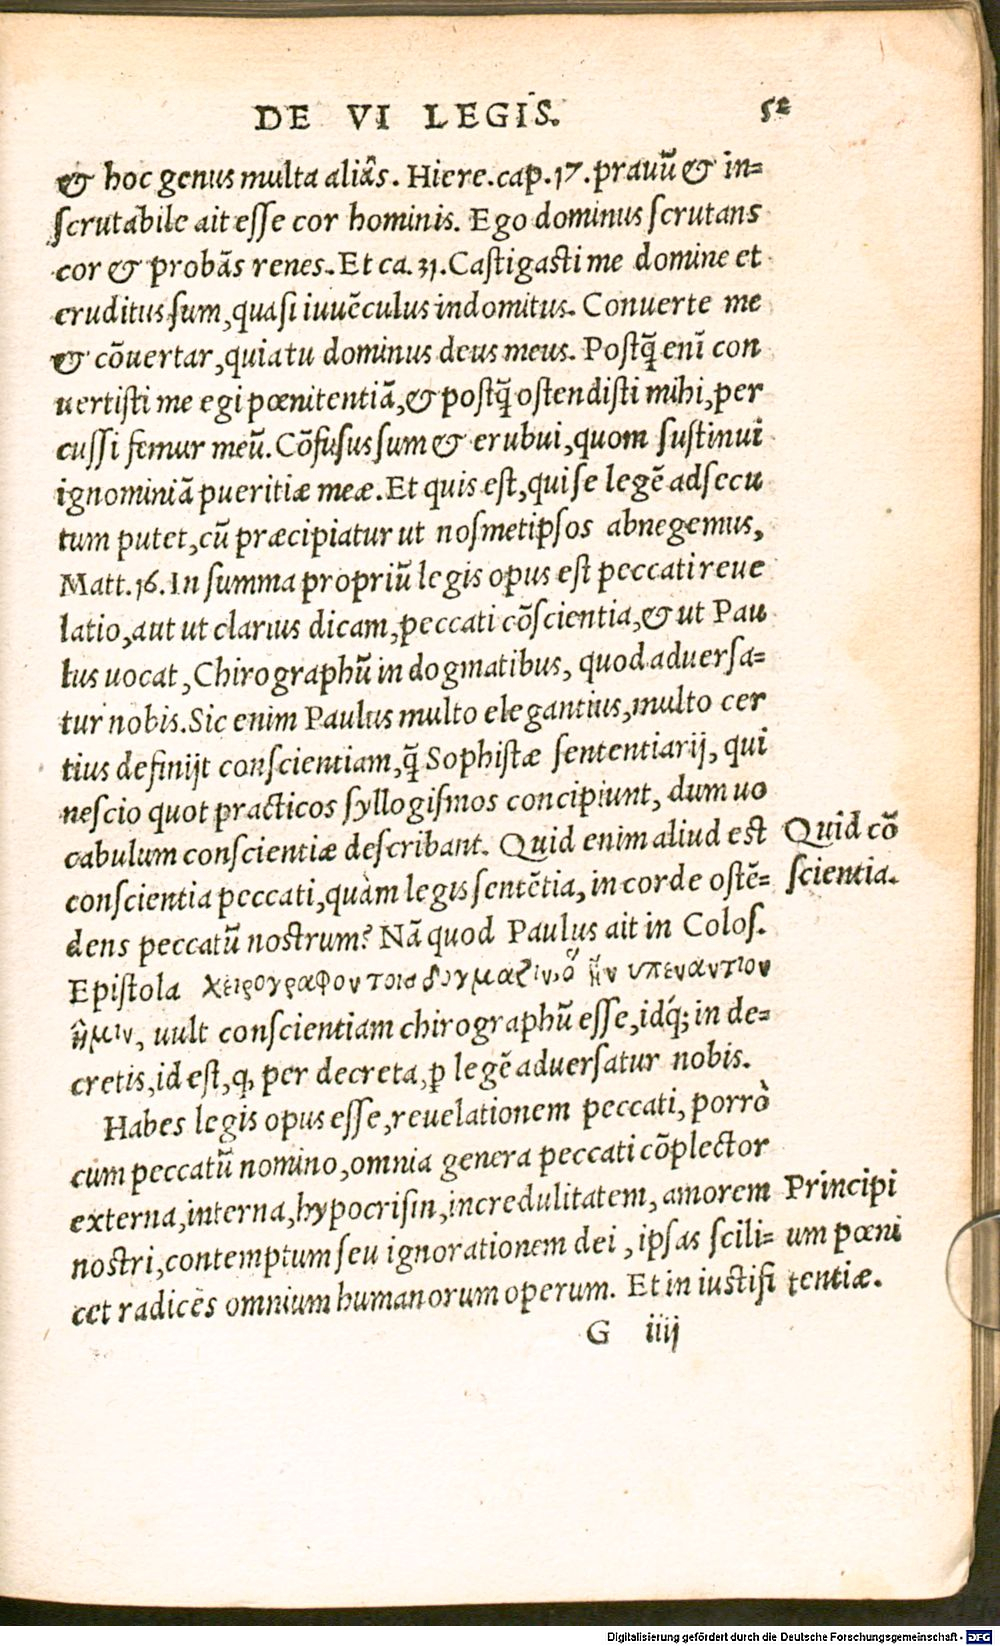 DE VI LEGIS. 52
& hoc genus multa aliâs. Hiere. cap. 17. prauũ & in=
scrutabile ait esse cor hominis. Ego dominus scrutans
cor & probãs renes. Et ca. 31. Castigasti me domine et
eruditus sum, quasi iuuẽculus indomitus. Conuerte me
& cõuertar, quia tu dominus deus meus. Postq̃ enĩ con
uertisti me egi pœnitentiã, & postq̃ ostendisti mihi, per
cussi femur meũ. Cõfusus sum & erubui, quom sustinui
ignominiã pueritiæ meæ. Et quis est, qui se legẽ adsecu
tum putet, cũ præcipiatur ut nosmetipsos abnegemus,
Matt. 16. In summa propriũ legis opus est peccati reue
latio, aut ut clarius dicam, peccati cõscientia, & ut Pau
lus uocat, Chirographũ in dogmatibus, quod aduersa=
tur nobis. Sic enim Paulus multo elegantius, multo cer
tius definijt conscientiam, q̃ Sophistæ sententiarij, qui
nescio quot practicos syllogismos concipiunt, dum uo
cabulum conscientiæ describant. Quid enim aliud est
Quid cõ
scientia.
conscientia peccati, quàm legis sentẽtia, in corde ostẽ=
dens peccatũ nostrum? Nã quod Paulus ait in Colos.
Epistola χειρογραφον τοισ δογμασιν, ὃ ἦν υπεναντιον
ἡμιν, uult conscientiam chirographũ esse, idq́; in de=
cretis, id est, ꝙ per decreta, ꝑ legẽ aduersatur nobis.
Habes legis opus esse, reuelationem peccati, porrò
cum peccatũ nomino, omnia genera peccati cõplector
externa, interna, hypocrisin, incredulitatem, amorem
nostri, contemptum seu ignorationem dei, ipsas scili=
cet radices omnium humanorum operum. Et in iustifi
Principi
um pœni
tentiæ.
G iiij
Digitalisierung gefördert durch die Deutsche Forschungsgemeinschaft - DFG